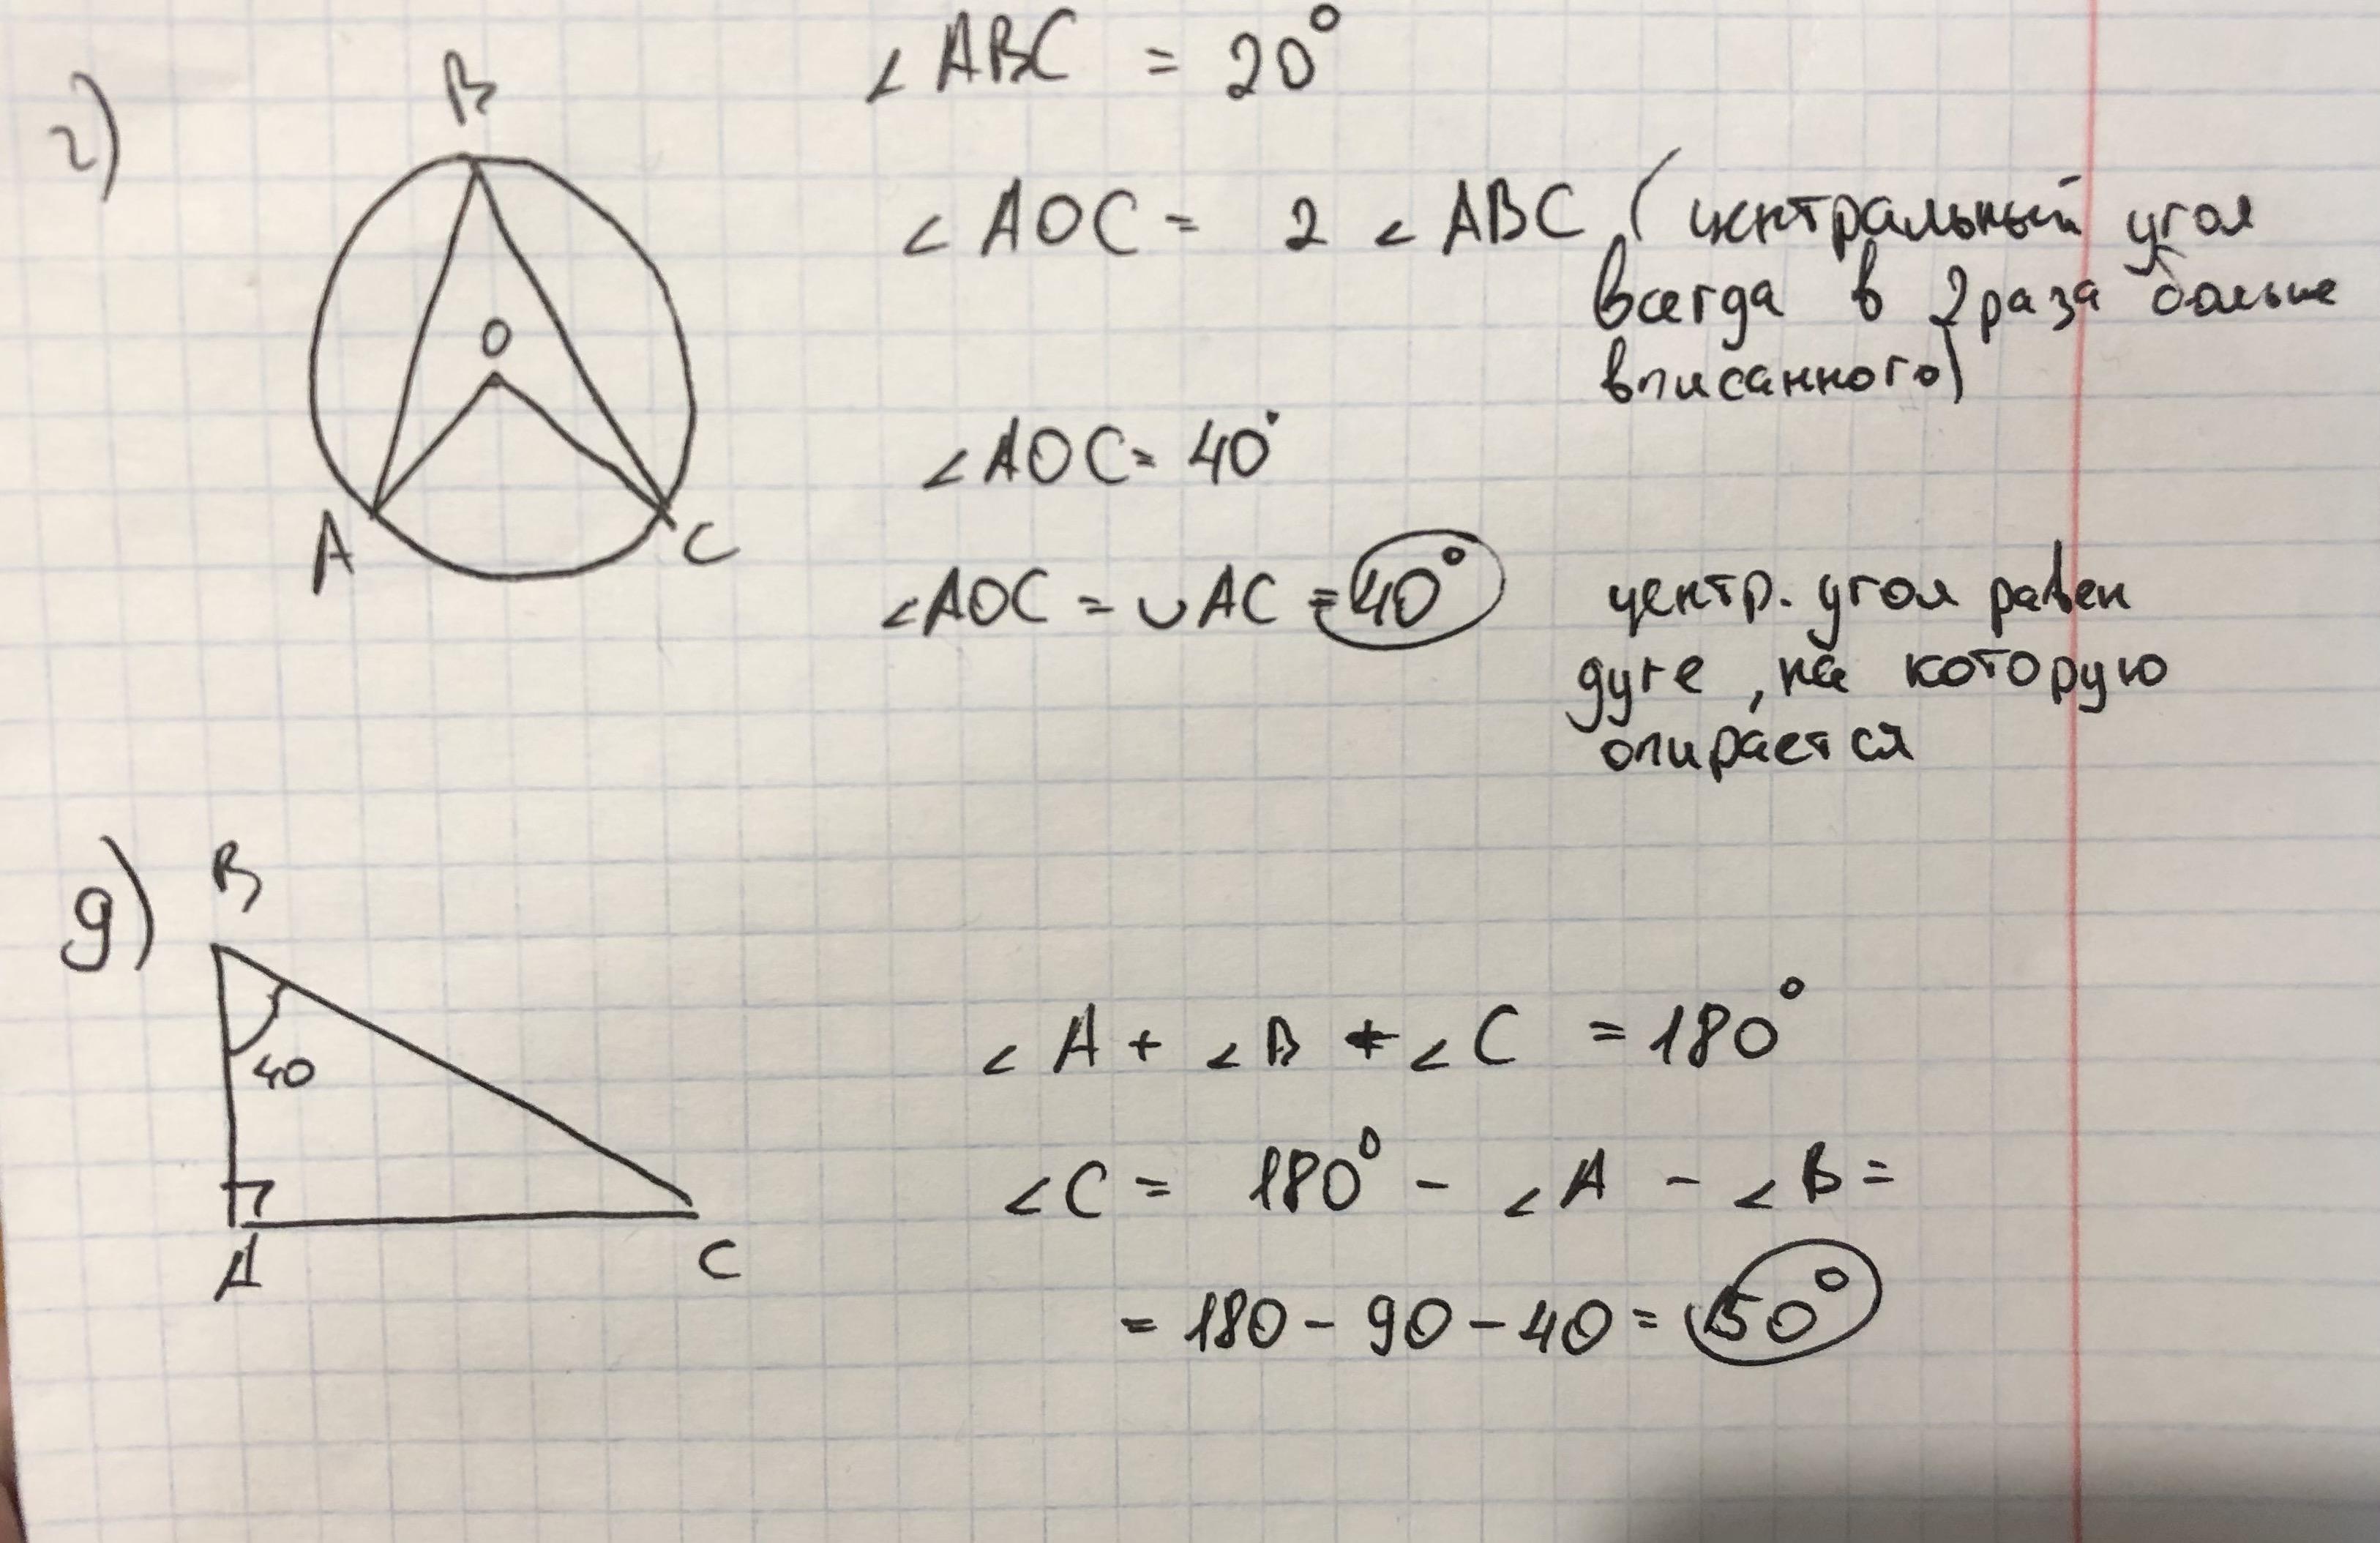 г)
B
O
A
C
∠ABC = 20°
∠AOC = 2 ∠ABC (центральный угол
всегда в 2 раза больше
вписанного)
∠AOC = 40°
∠AOC = ◡AC = 40°
центр. угол равен
дуге, на которую
опирается
д)
B
40
A
C
∠A + ∠B + ∠C = 180°
∠C = 180° - ∠A - ∠B =
= 180 - 90 - 40 = 50°